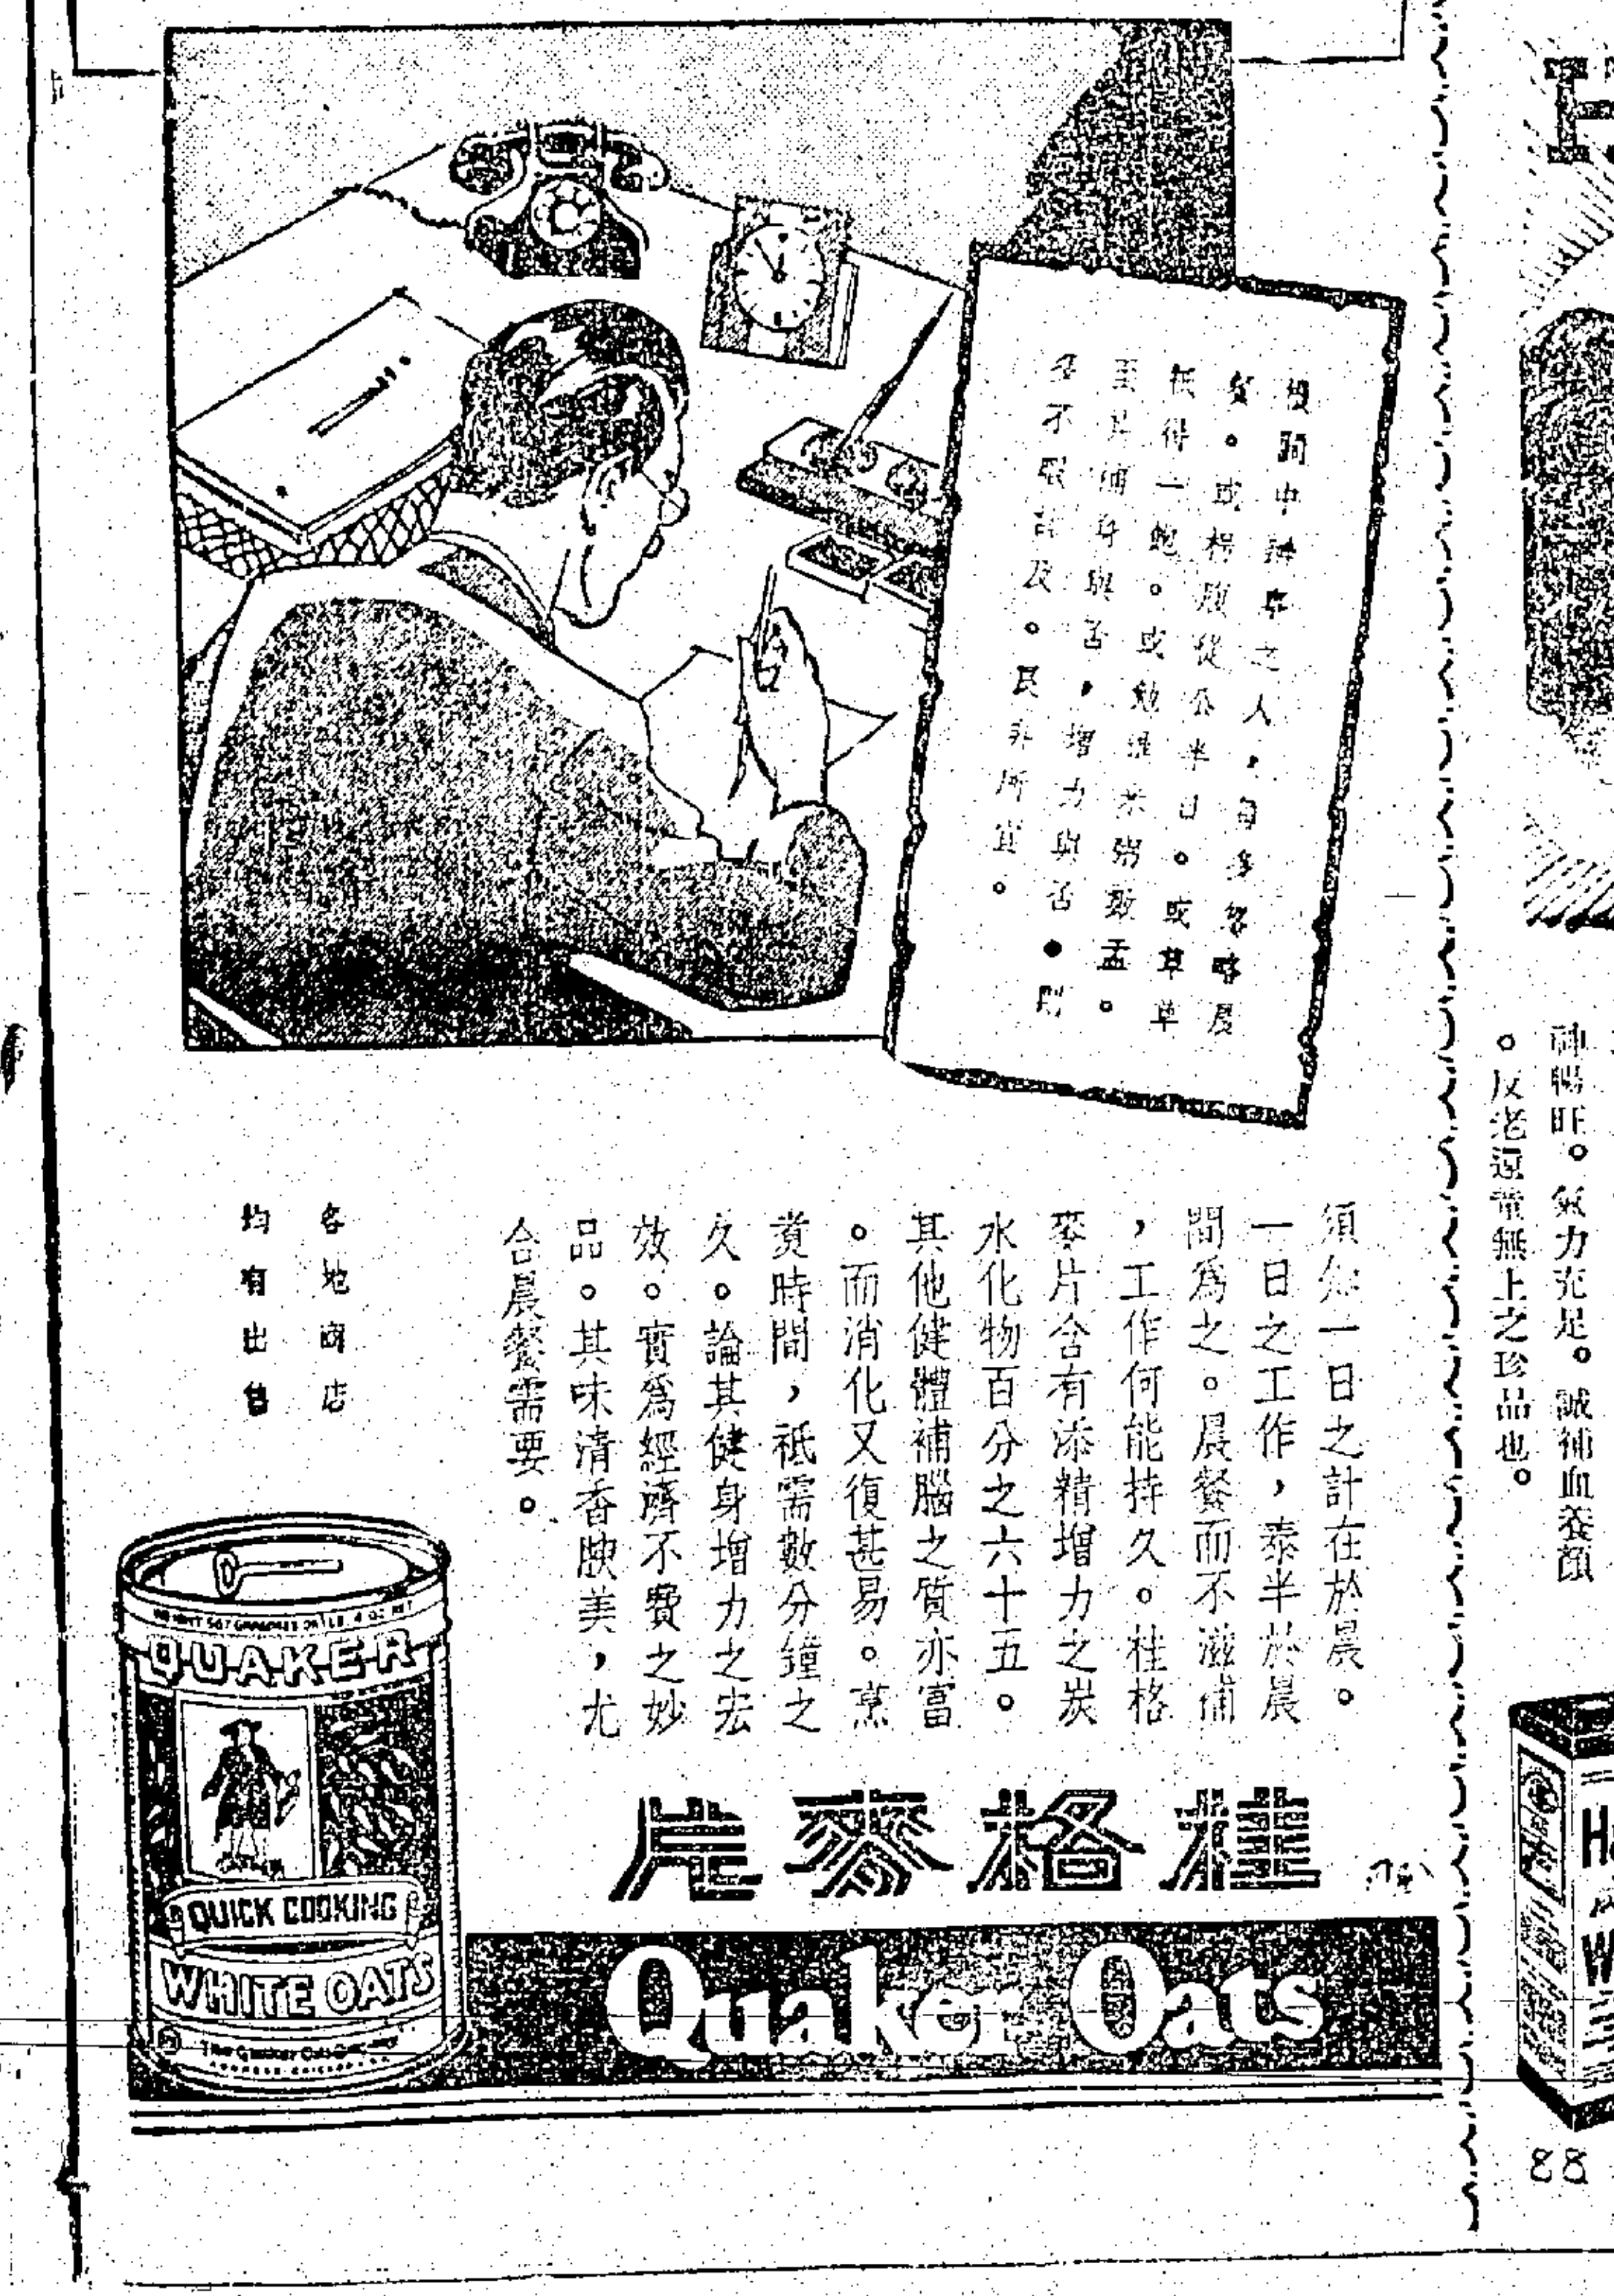 中辦事之人，每多忽略晨
餐。或枵腹從公半日。或草草
祇得一飽。或勉進米粥數盂。
至於補身與否，增力與否●則
多不暇計及。良非所宜。
須知一日之計在於晨。
一日之工作，泰半於晨
間爲之。晨餐而不滋補
，工作何能持久。桂格
麥片含有添精增力之炭
水化物百分之六十五。
其他健體補腦之質亦富
。而消化又復甚易。烹
煑時間，祗需數分鐘之
久。論其健身增力之宏
效。實爲經濟不費之妙
品。其味清香腴美，尤
合晨餐需要。
各地商店
均有出售
片麥格桂
Quaker Oats
WEIGHT 567 GRAMMES OR 1 LB. 4 OZ. NET
QUAKER
QUICK COOKING
WHITE OATS
The Quaker Oats Company
神暢旺。氣力充足。誠補血養顏
。反老還童無上之珍品也。
88